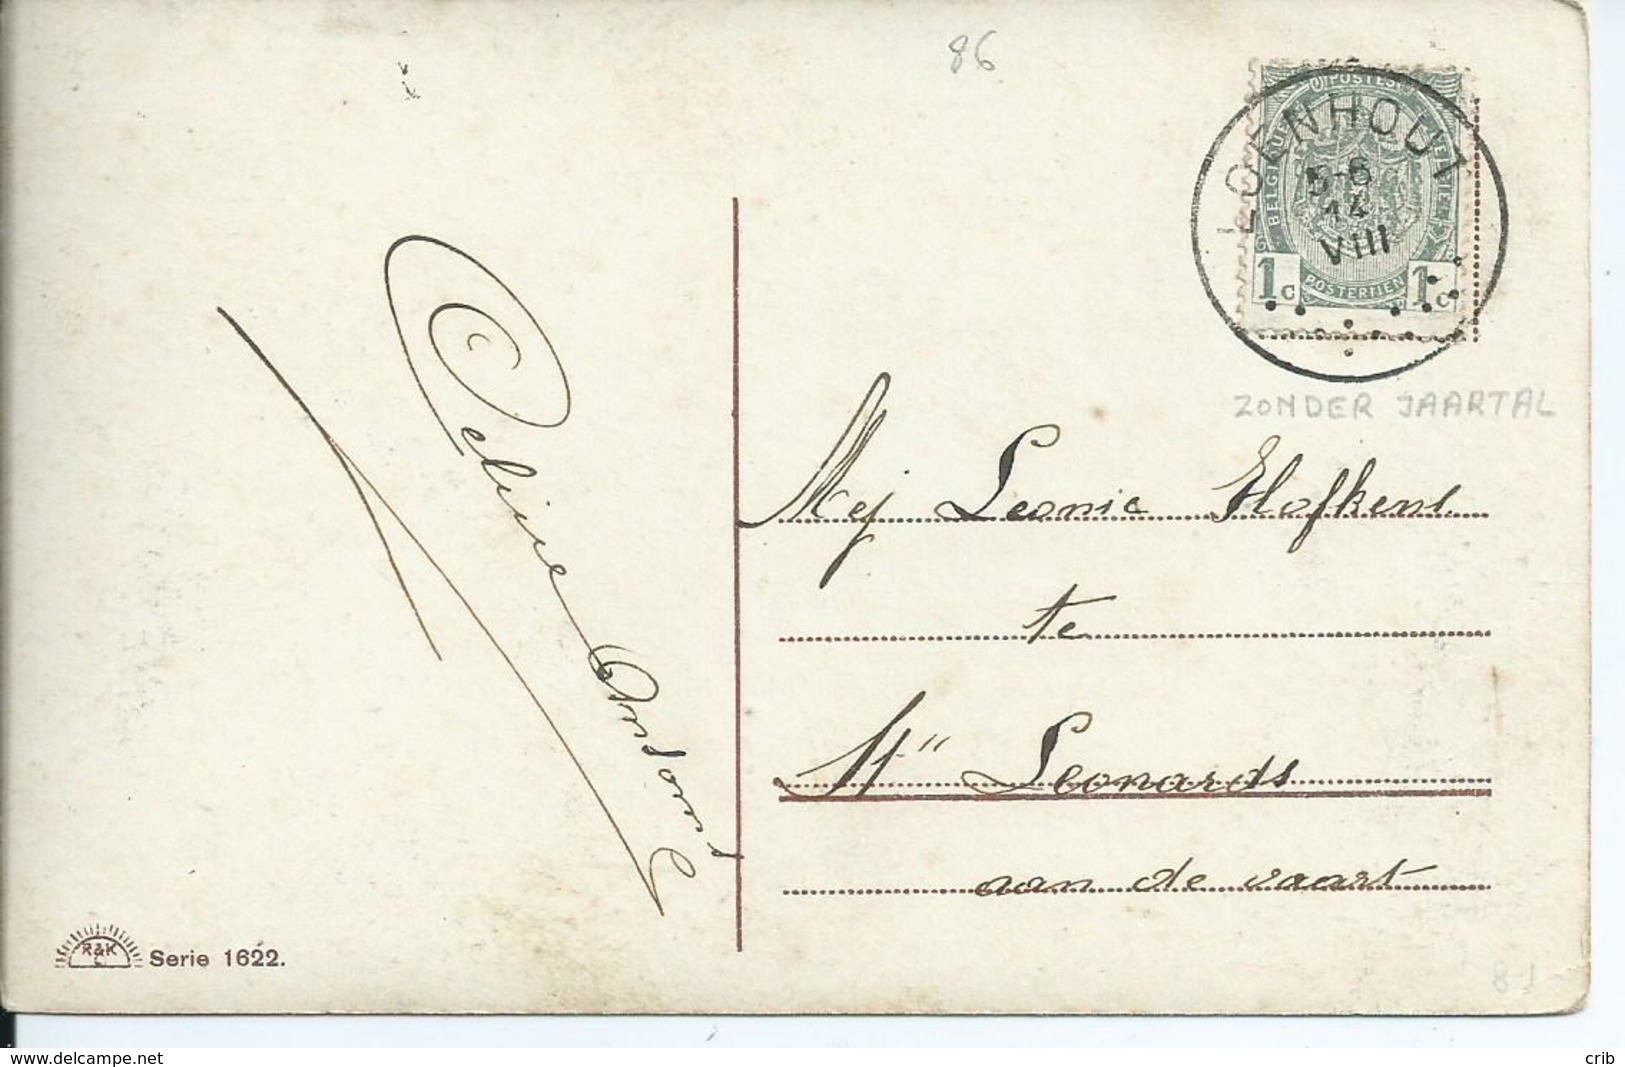 86
LOENHOUT
5-6
14
VIII
POSTES
BELGIQUE
BELGIË
POSTERIJEN
1c 1c
ZONDER JAARTAL
Mej Leonie Hofkens
te
St" Leonards
aan de vaart
Celine
R&K
Serie 1622.
81
www.delcampe.net
crib